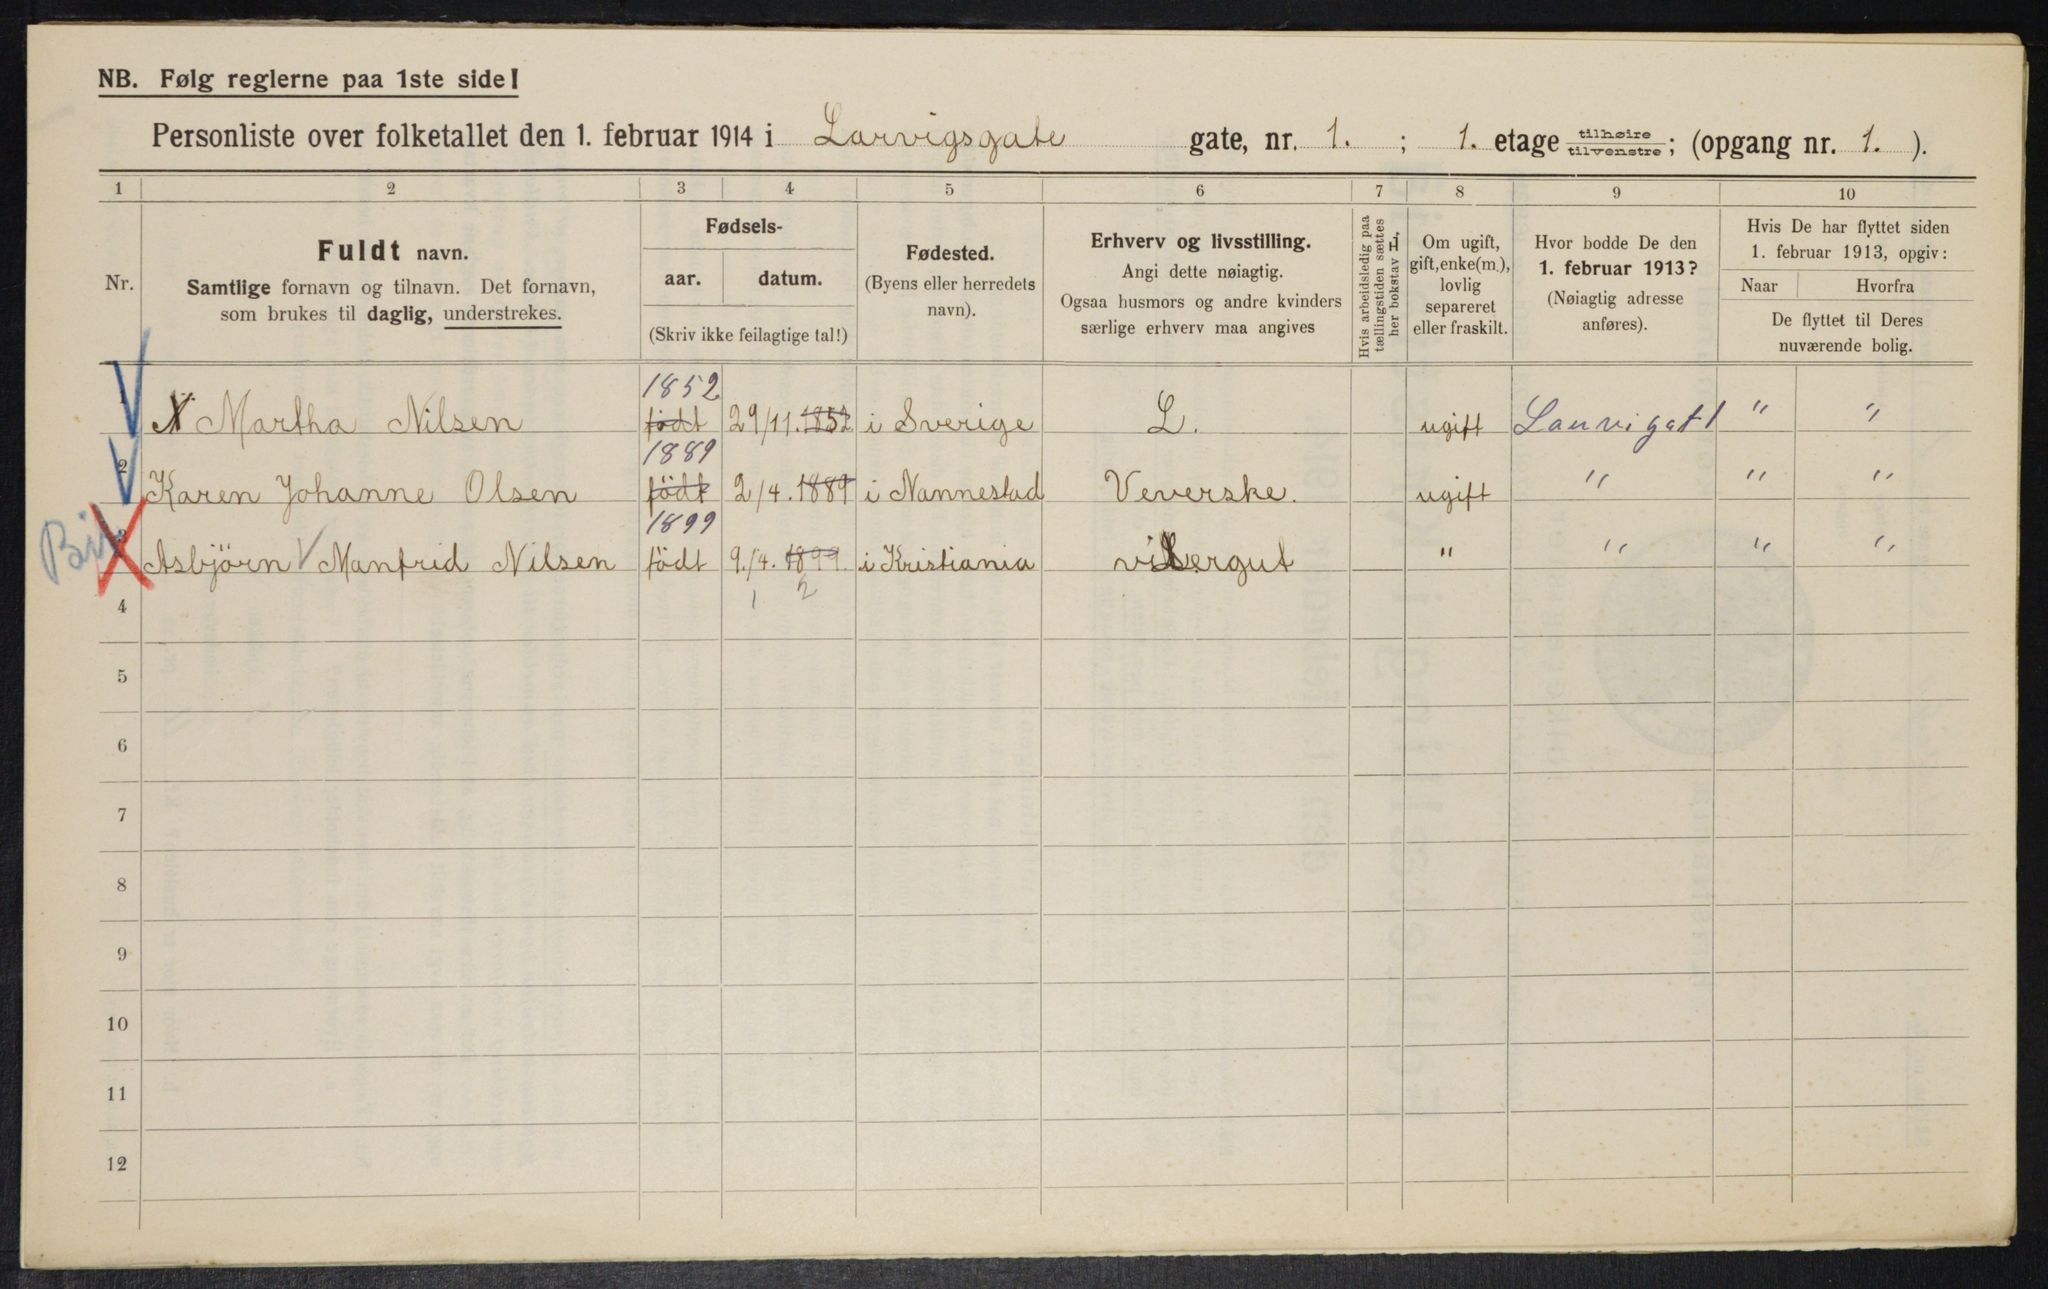 NB. Følg reglerne paa 1ste side!
Personliste over folketallet den 1. februar 1914 i Larvigsgate gate, nr. 1. ; 1. etage tilhøire tilvenstre; (opgang nr. 1. ).
1 2 3 4 5 6 7 8 9 10
Nr.
Fuldt navn.
Samtlige fornavn og tilnavn. Det fornavn,
som brukes til daglig, understrekes.
Fødsels-
aar. datum.
(Skriv ikke feilagtige tal!)
Fødested.
(Byens eller herredets
navn).
Erhverv og livsstilling.
Angi dette nøiagtig.
Ogsaa husmors og andre kvinders
særlige erhverv maa angives
Hvis arbeidsledig paa
tællingstiden sættes
her bokstav L.
Om ugift,
gift, enke(m.),
lovlig
separeret
eller fraskilt.
Hvor bodde De den
1. februar 1913?
(Nøiagtig adresse
anføres).
Hvis De har flyttet siden
1. februar 1913, opgiv:
Naar Hvorfra
De flyttet til Deres
nuværende bolig.
1852
Martha Nilsen født 29/11. 1852 i Sverige L. ugift Lauvigat 1 " "
1889
2 Karen Johanne Olsen født 2/4. 1889 i Nannestad Veverske. ugift " " "
1899
Asbjörn Manfrid Nilsen født 9./4. 1899 i Kristiania " " " "
1 2
4
5
6
7
8
9
10
11
12